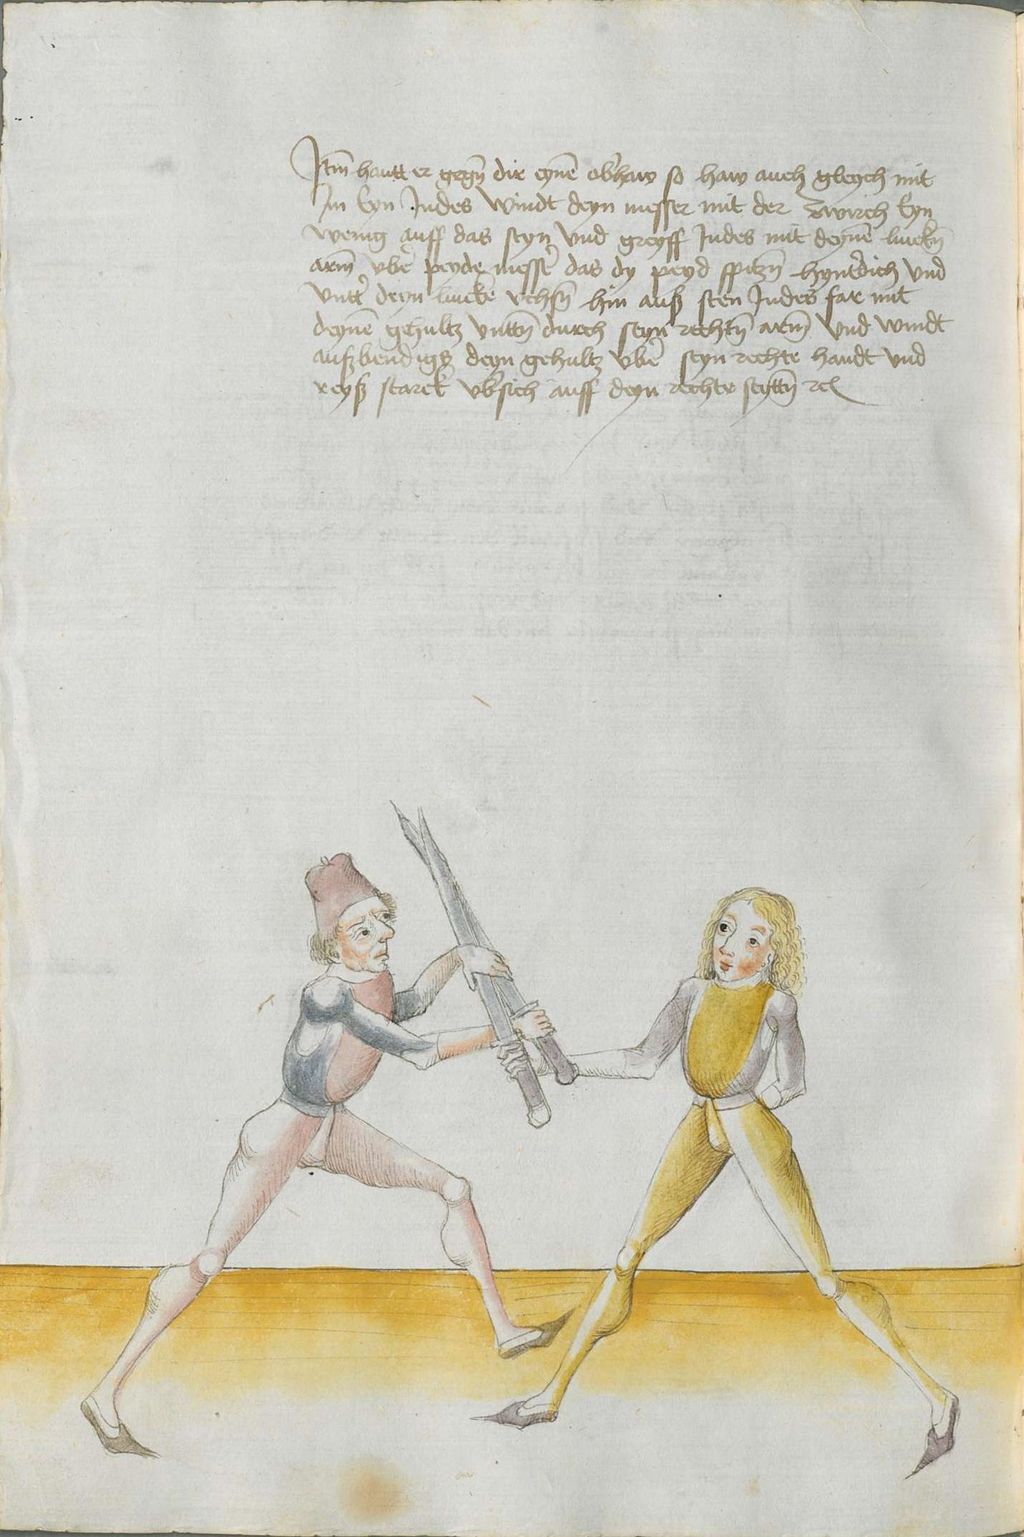 Itm hautt er gegñ dir eynē ob̕haw so haw auch gleych mit
Im Eyn Indes windt deyn messer mit der zwirch Eyn
wenig auff das seyn vnd greyff Indes mit deynē linckñ
arm̄ vbe̕ peyde messe̕ das dy peyd spitzñ hynt̕dich vnd
vntt̕ deyn lincke vchsñ hin auß sten Indes far mit
deynē gehultz vnttñ durch seyn rechtñ arm̄ vnd windt
außbendigs deyn gehultz vbe̕ seyn rechte handt vnd
reyß starck vb̕sich auff deyn rechte seyttñ rc